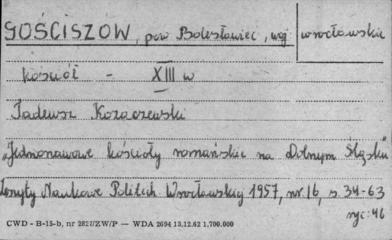 GOŚCISZÓW, pow Bolesławiec, woj wrocławskie
kościół - XIII w
Tadeusz Kozaczewski
"Jednonawowe kościoły romańskie na Dolnym Śląsku"
Zeszyty Naukowe Politech Wrocławskiej 1957, nr 16, s 34-63
ryc: 46
CWD - B-15-b, nr 2827/ZW/P — WDA 2694 13.12.62 1.700.000